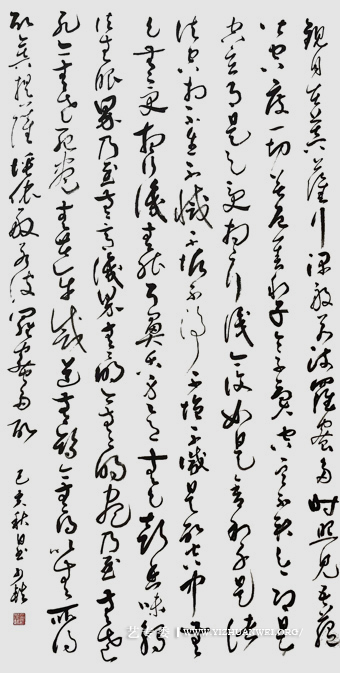 觀自在菩薩行深般若波羅蜜多時照見五蘊
皆空度一切苦厄舍利子色不異空空不異色色即是
空空即是色受想行識亦復如是舍利子是諸
法空相不生不滅不垢不淨不增不減是故空中無
色無受想行識無眼耳鼻舌身意無色聲香味觸
法無眼界乃至無意識界無無明亦無無明盡乃至無老
死亦無老死盡無苦集滅道無智亦無得以無所得
故菩提薩埵依般若波羅蜜多故
己亥秋